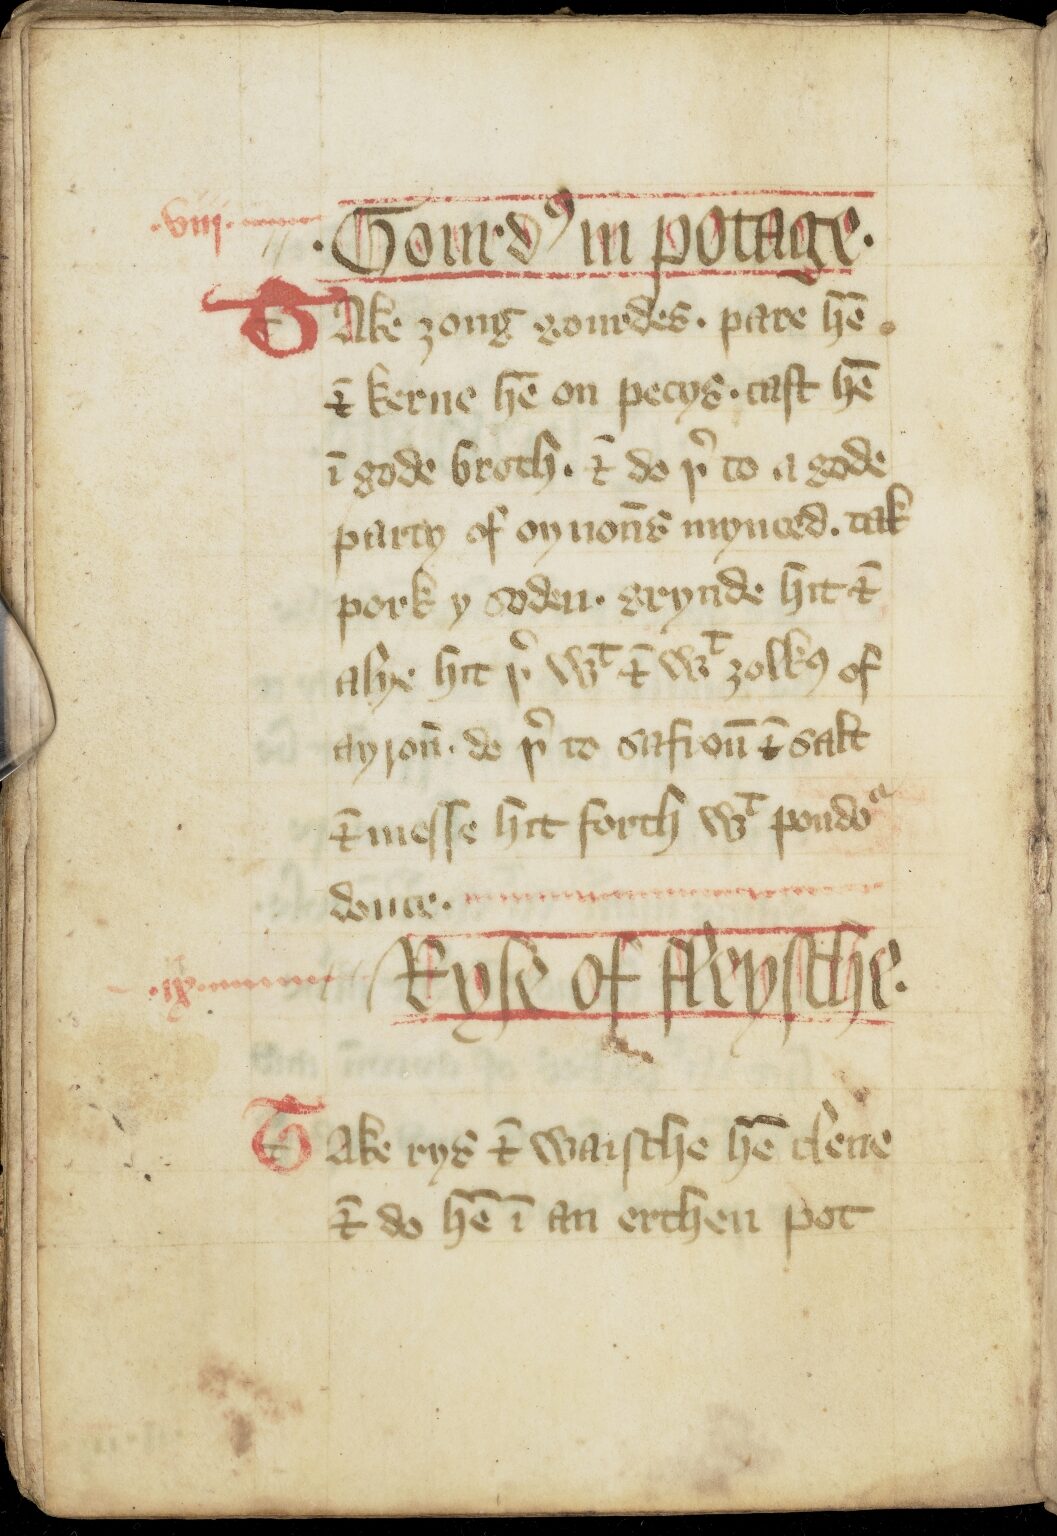 .viii.
.Gourdꝰ in potage.
TAke ȝong gourdes. pare hē
⁊ kerue hē on pecys. cast hē
ī gode broth. ⁊ do þ͛ to a gode
party of oynoūs mynced. tak
pork y soden. grynde hit ⁊
alye hit þ͛ wᵗ ⁊ wᵗ ȝolkꝰ of
ayroū. do þ͛ to safroū ⁊ salt
⁊ messe hit forth wᵗ poudoᵃ
douce.
.ix.
Ryse of fleysche.
TAke rys ⁊ waische hē clene
⁊ do hē ī an erthen pot